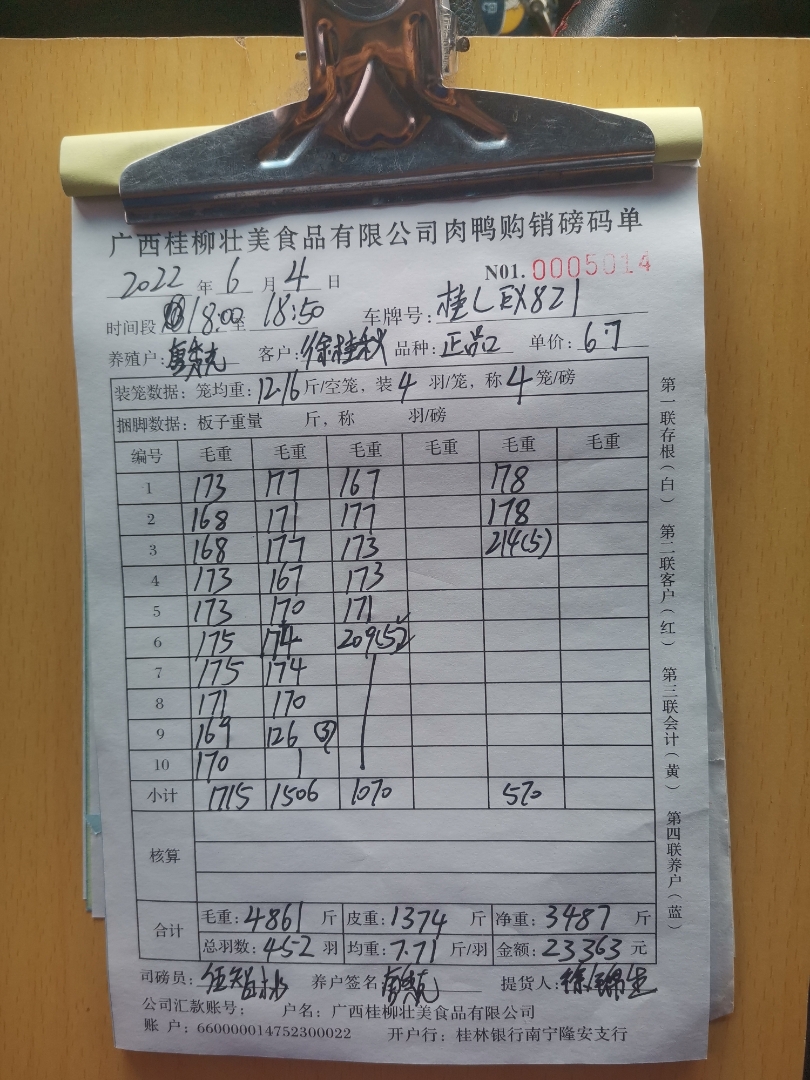 广西桂柳壮美食品有限公司肉鸭购销磅码单
2022 年 6 月 4 日 N01. 0005014
时间段 18:00 至 18:50 车牌号: 桂L EX821
养殖户: 客户: 徐桂秋 品种: 正品 单价: 6.7
装笼数据: 笼均重: 12.16 斤/空笼, 装 4 羽/笼, 称 4 笼/磅
捆脚数据: 板子重量 斤, 称 羽/磅
编号 毛重 毛重 毛重 毛重 毛重 毛重
1 173 177 167 178
2 168 171 177 178
3 168 177 173 214(5)
4 173 167 173
5 173 170 171
6 175 174 209(5)
7 175 174
8 171 170
9 169 126 (3)
10 170
小计 1715 1506 1070 570
核算
合计 毛重: 4861 斤 皮重: 1374 斤 净重: 3487 斤
总羽数: 452 羽 均重: 7.71 斤/羽 金额: 23363 元
司磅员: 养户签名 提货人:
公司汇款账号: 户名: 广西桂柳壮美食品有限公司
账 户: 660000014752300022 开户行: 桂林银行南宁隆安支行
第一联存根(白) 第二联客户(红) 第三联会计(黄) 第四联养户(蓝)